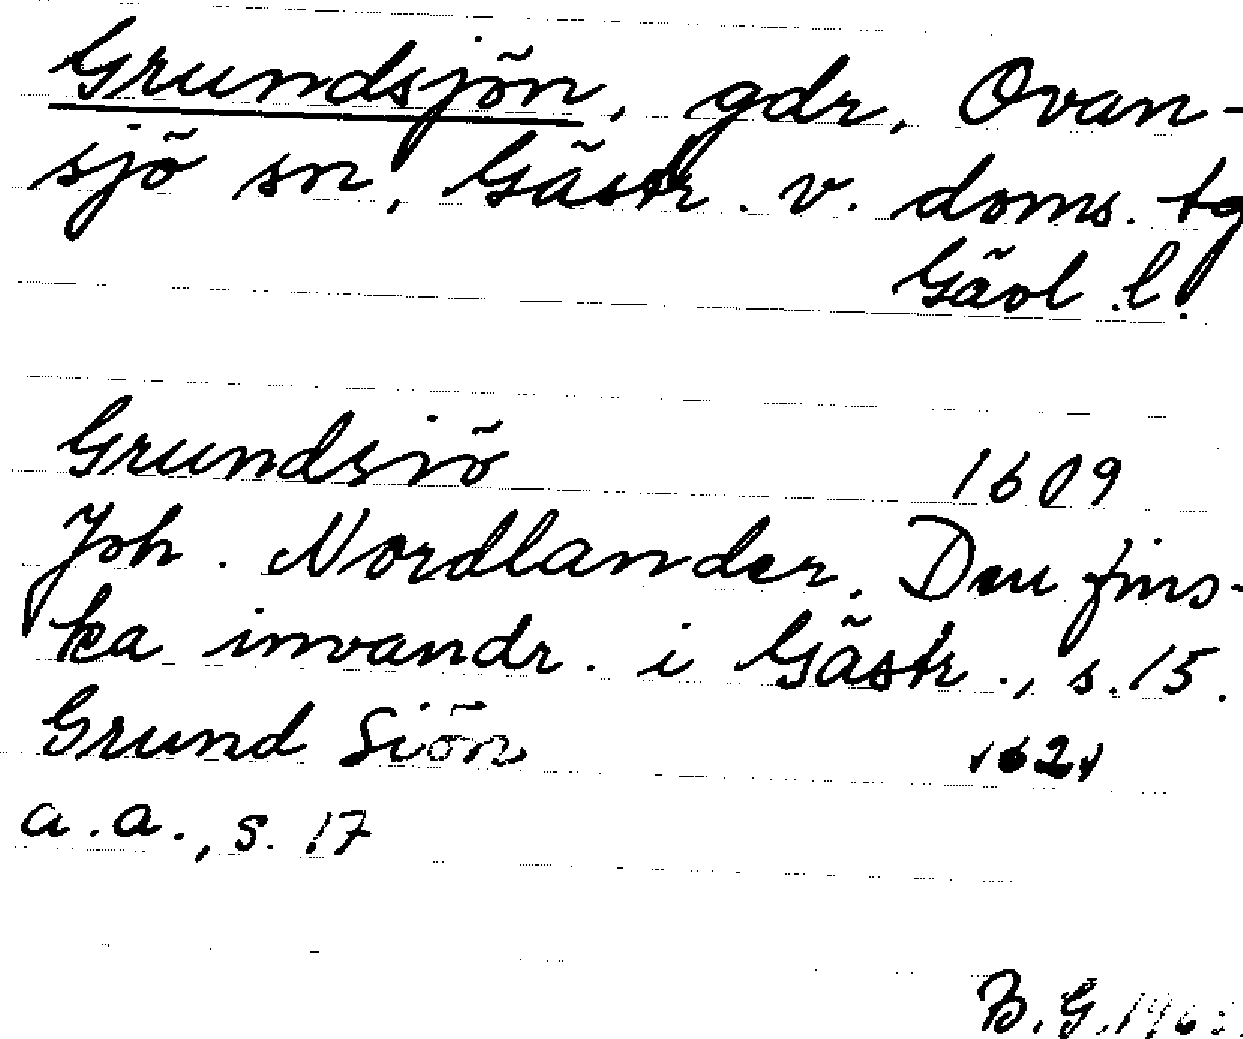 Grundsjön, gdr, Ovan-
sjö sn, Gästr. v. doms. tg
Gävl. l.
Grundsiö 1609
Joh. Nordlander, Den fins-
ka invandr. i Gästr., s. 15.
Grund Siön 1621
a.a., s. 17
B.G.